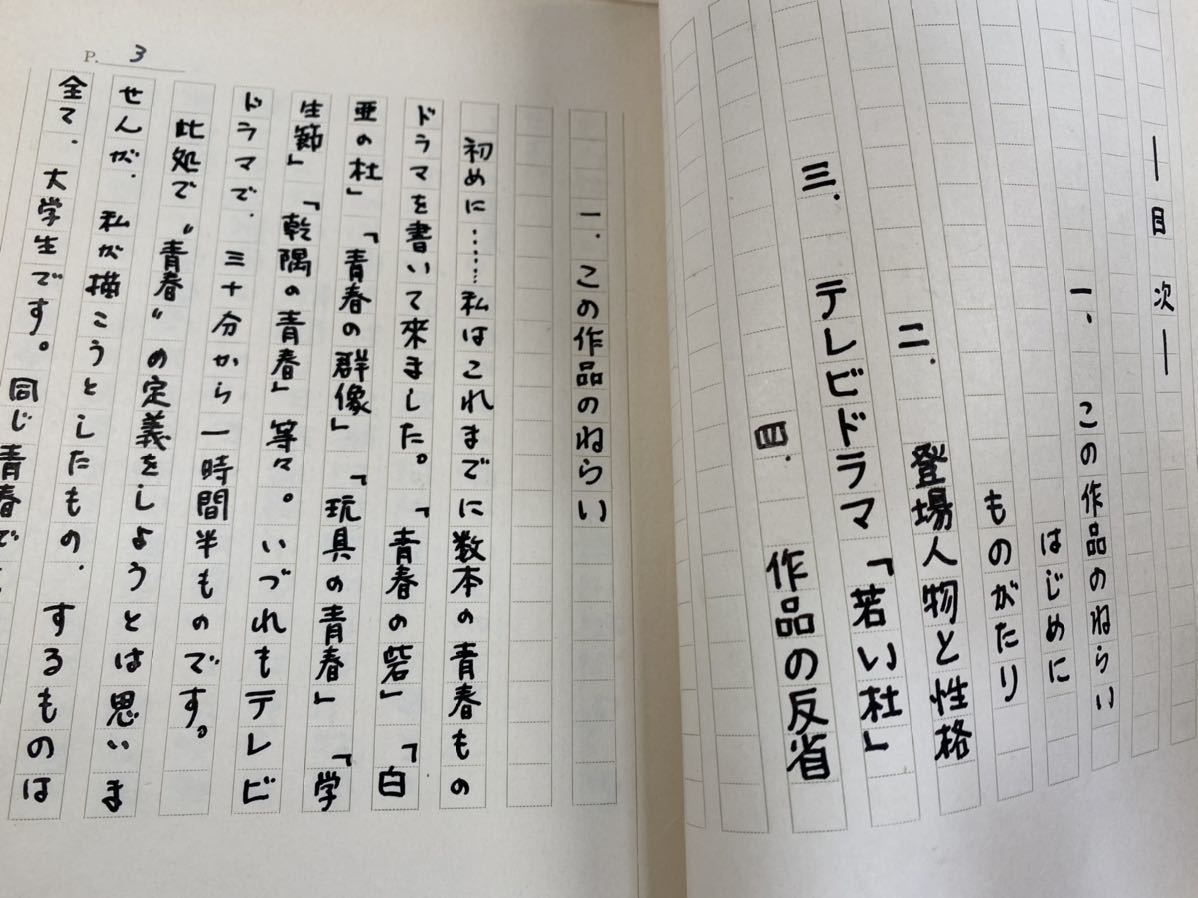 ―目 次―
一. この作品のねらい
はじめに
ものがたり
二. 登場人物と性格
三. テレビドラマ「若い杜」
四. 作品の反省
一. この作品のねらい
初めに……私はこれまでに数本の青春もの
ドラマを書いて来ました。「青春の砦」「白
亜の杜」「青春の群像」「玩具の青春」「学
生節」「乾隅の青春」等々。いづれもテレビ
ドラマで、三十分から一時間半ものです。
此処で〝青春〟の定義をしようとは思いま
せんが、私が描こうとしたもの、するものは
全て、大学生です。同じ青春で
P. 3